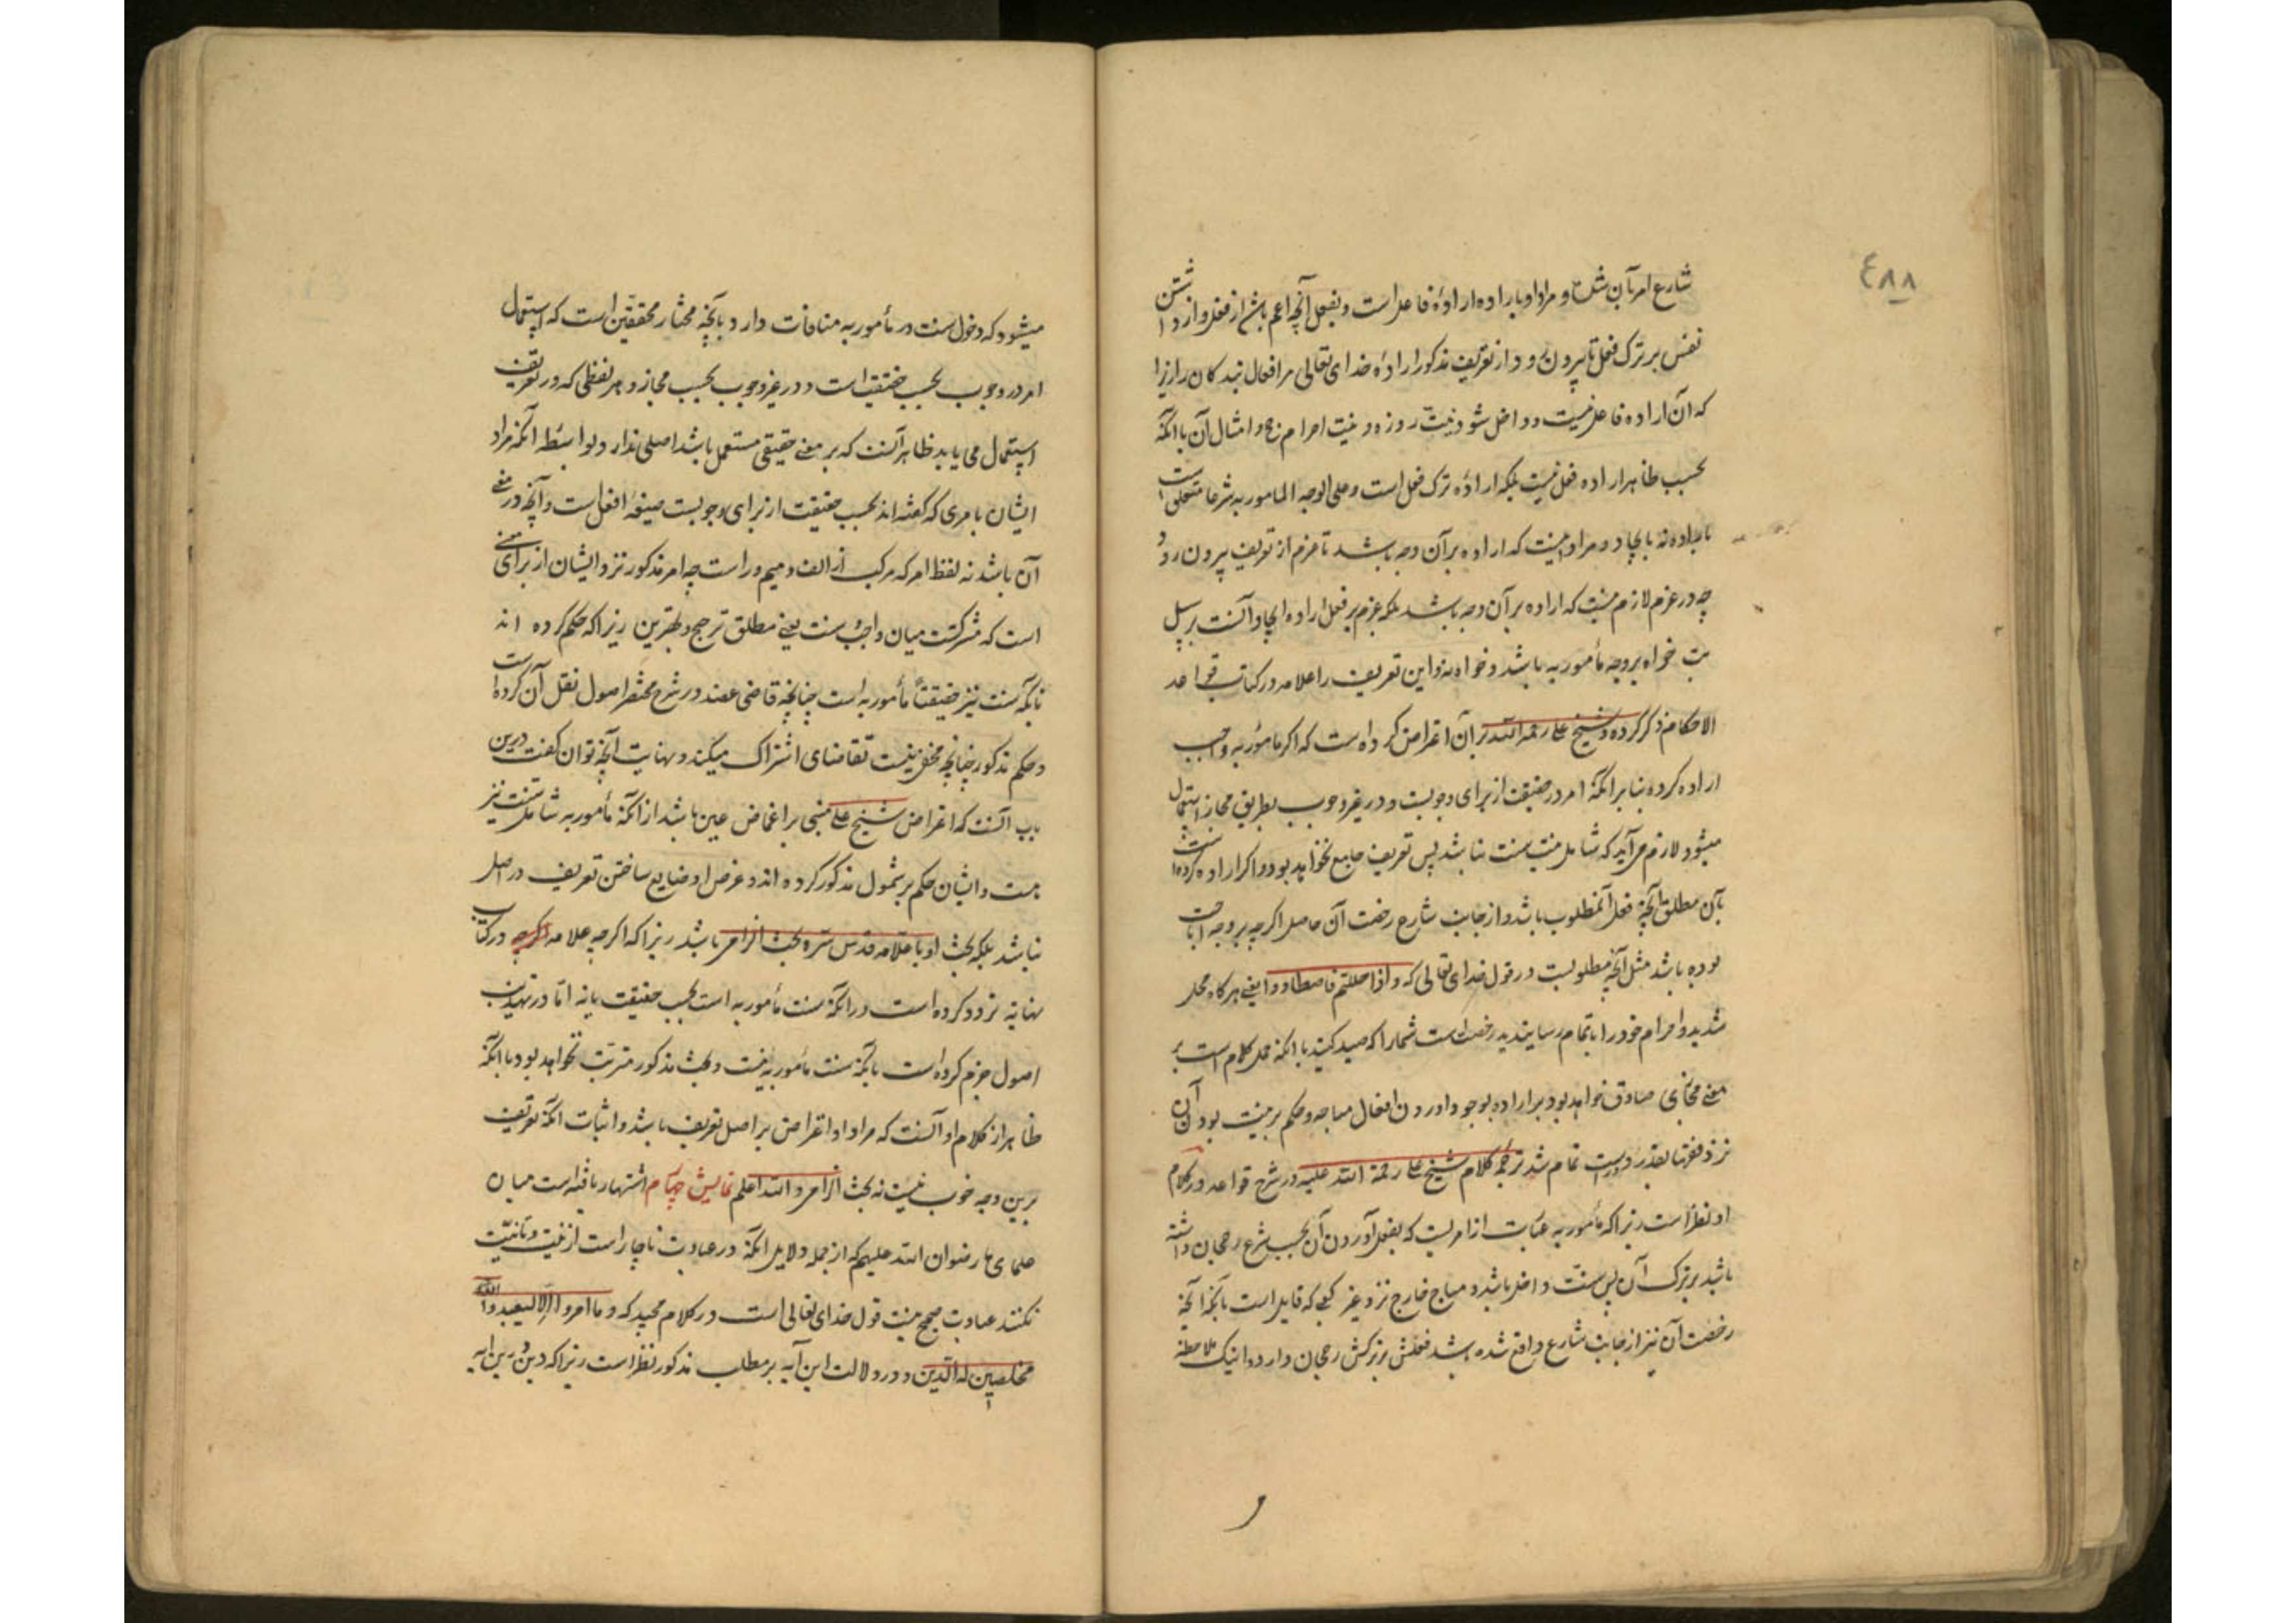 ٤٨٨
شارع امر بآن شده و مراد او باراده اراده فاعل است و بفعل آنچه اعم باشد از فعل و از داشتن
نفس بر ترک فعل تا بیرون رود از تعریف مذکور اراده خدای تعالی مر افعال بندکان را زیرا
که آن اراده فاعل نیست و داخل شود نیت روزه و نیت احرام حج و امثال آن با آنکه
بحسب ظاهر اراده فعل نیست بلکه اراده ترک فعل است و علی الوجه المامور به شرعا متعلق است
باراده نه بایجاد و مراد اینست که اراده بر آن وجه باشد تا عزم از تعریف بیرون رود
چه در عزم لازم نیست که اراده بر آن وجه باشد بلکه عزم بر فعل اراده ایجاد آنست بر سبیل
خواه بر وجه مأمور به باشد و خواه نه و این تعریف را علامه در کتاب قواعد
الاحکام ذکر کرده و شیخ علی رحمه الله بر آن اعتراض کرده است که اکر مأمور به واجب
اراده کرده بنا بر آنکه امر در حقیقت از برای وجوبست و در غیر وجوب بطریق مجاز استعمال
میشود لازم می آید که شامل نیت سنت نباشد پس تعریف جامع نخواهد بود و اکر اراده کرده است
بآن مطلق آنچه فعل آن مطلوب باشد و از جانب شارع رخصت آن حاصل اکرچه بر وجه اباحت
بوده باشد مثل آنچه مطلوبست در قول خدای تعالی که و اذا حللتم فاصطادوا یعنی هرکاه محل
شدید و احرام خود را باتمام رسانیدید رخصت است شما را که صید کنید با آنکه حمل کلام است بر
معنی مجازی صادق خواهد بود بر اراده بوجود آوردن افعال مباحه و حکم بر نیت بودن آن
نزد فقها بعذر تمام شد ترجمه کلام شیخ علی رحمة الله علیه در شرح قواعد و در کلام
او نظر است زیرا که مأمور به عبارت از امریست که بفعل آوردن آن بحسب شرع رجحان داشته
باشد بر ترک آن پس سنت داخل باشد و مباح خارج نزد غیر کعبی که قایل است بآنکه آنچه
رخصت آن نیز از جانب شارع واقع شده باشد فعلش بر ترکش رجحان دارد و اینک ملاحظه
میشود که دخول سنت در مأمور به منافات دارد بآنچه مختار محققین است که استعمال
امر در وجوب بحسب حقیقت است و در غیر وجوب بحسب مجاز و هر لفظی که در تعریف
استعمال می یابد ظاهر آنست که بر معنی حقیقی مستعمل باشد اصلی ندارد بواسطه آنکه مراد
ایشان بامری که کفته اند بحسب حقیقت از برای وجوبست صیغه افعل است و آنچه در معنی
آن باشد نه لفظ امر که مرکب از الف و میم و راست چه امر مذکور نزد ایشان از برای معنی
است که مشترکست میان واجب و سنت یعنی مطلق ترجیح و بهترین زیرا که حکم کرده اند
بآنکه سنت نیز حقیقتاً مأمور به است چنانچه قاضی عضد در شرح مختصر اصول نقل آن کرده است
و حکم مذکور چنانچه مخفی نیست تقاضای اشتراک میکند و نهایت آنچه توان کفت درین
باب آنست که اعتراض شیخ علی مبنی بر اغماض عین باشد از آنکه مأمور به شامل سنت نیز
هست و ایشان حکم بر شمول مذکور کرده اند و غرض او ضایع ساختن تعریف در اصل
نباشد بلکه بحث او با علامه قدس سره بحث الزامی باشد زیرا که اکرچه علامه اکرچه در کتاب
نهایه تردد کرده است در آنکه سنت مأمور به است بحسب حقیقت یا نه اما در تهذیب
اصول جزم کرده است بآنکه سنت مأمور به نیست و بحث مذکور مترتب نخواهد بود با آنکه
ظاهر از کلام او آنست که مراد او اعتراض بر اصل تعریف باشد و اثبات آنکه تعریف
برین وجه خوب نیست نه بحث الزامی و الله اعلم نمایش چهارم اشتهار یافته است میان
علمای ما رضوان الله علیهم که از جمله دلایل آنکه در عبادت ناچار است از نیت و تا نیت
نکنند عبادت صحیح نیست قول خدای تعالی است در کلام مجید که و ما امروا الا لیعبدوا الله
مخلصین له الدین و در دلالت این آیه بر مطلب مذکور نظر است زیرا که درین آیه